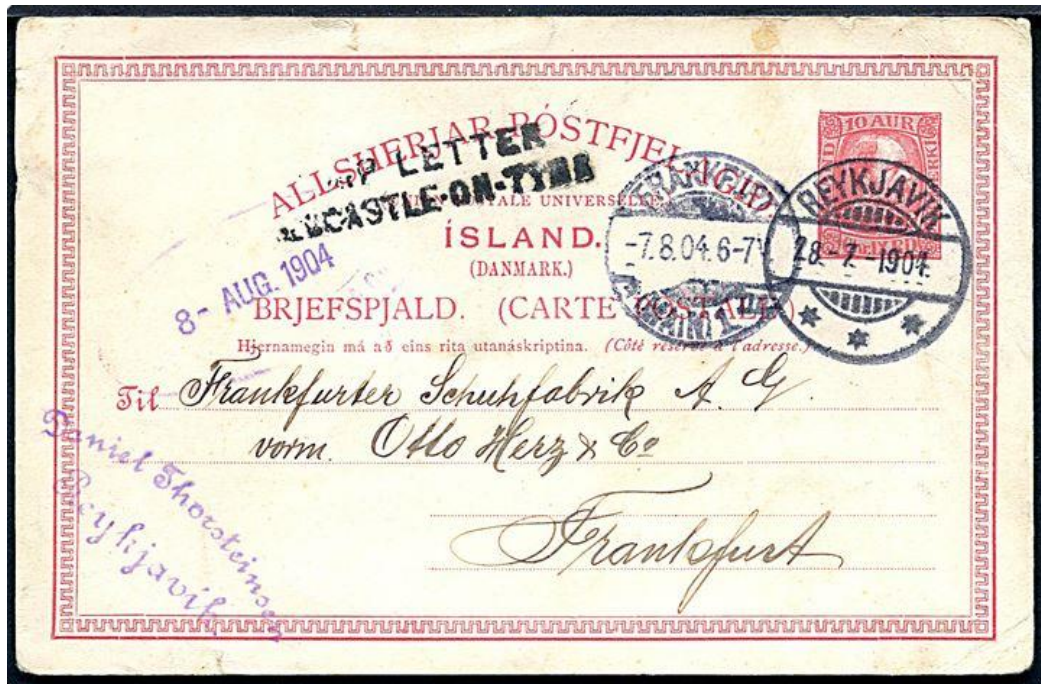 ALLSHERJAR PÓSTFJELAGID.
LETTER
CASTLE-ON-TYNE
UNIVERSELLE
ÍSLAND.
(DANMARK.)
BRJEFSPJALD. (CARTE POSTALE)
Hjernamegin má að eins rita utanáskriptina. (Côté réservé à l'adresse.)
10 AUR
REYKJAVIK
28-7-1904
-7.8.04.6-7
(MAIN) 1
8- AUG. 1904
Til Frankfurter Schuhfabrik A. G.
vorm. Otto Herz & Co
Frankfurt
Daniel Thorsteinsson
Reykjavik